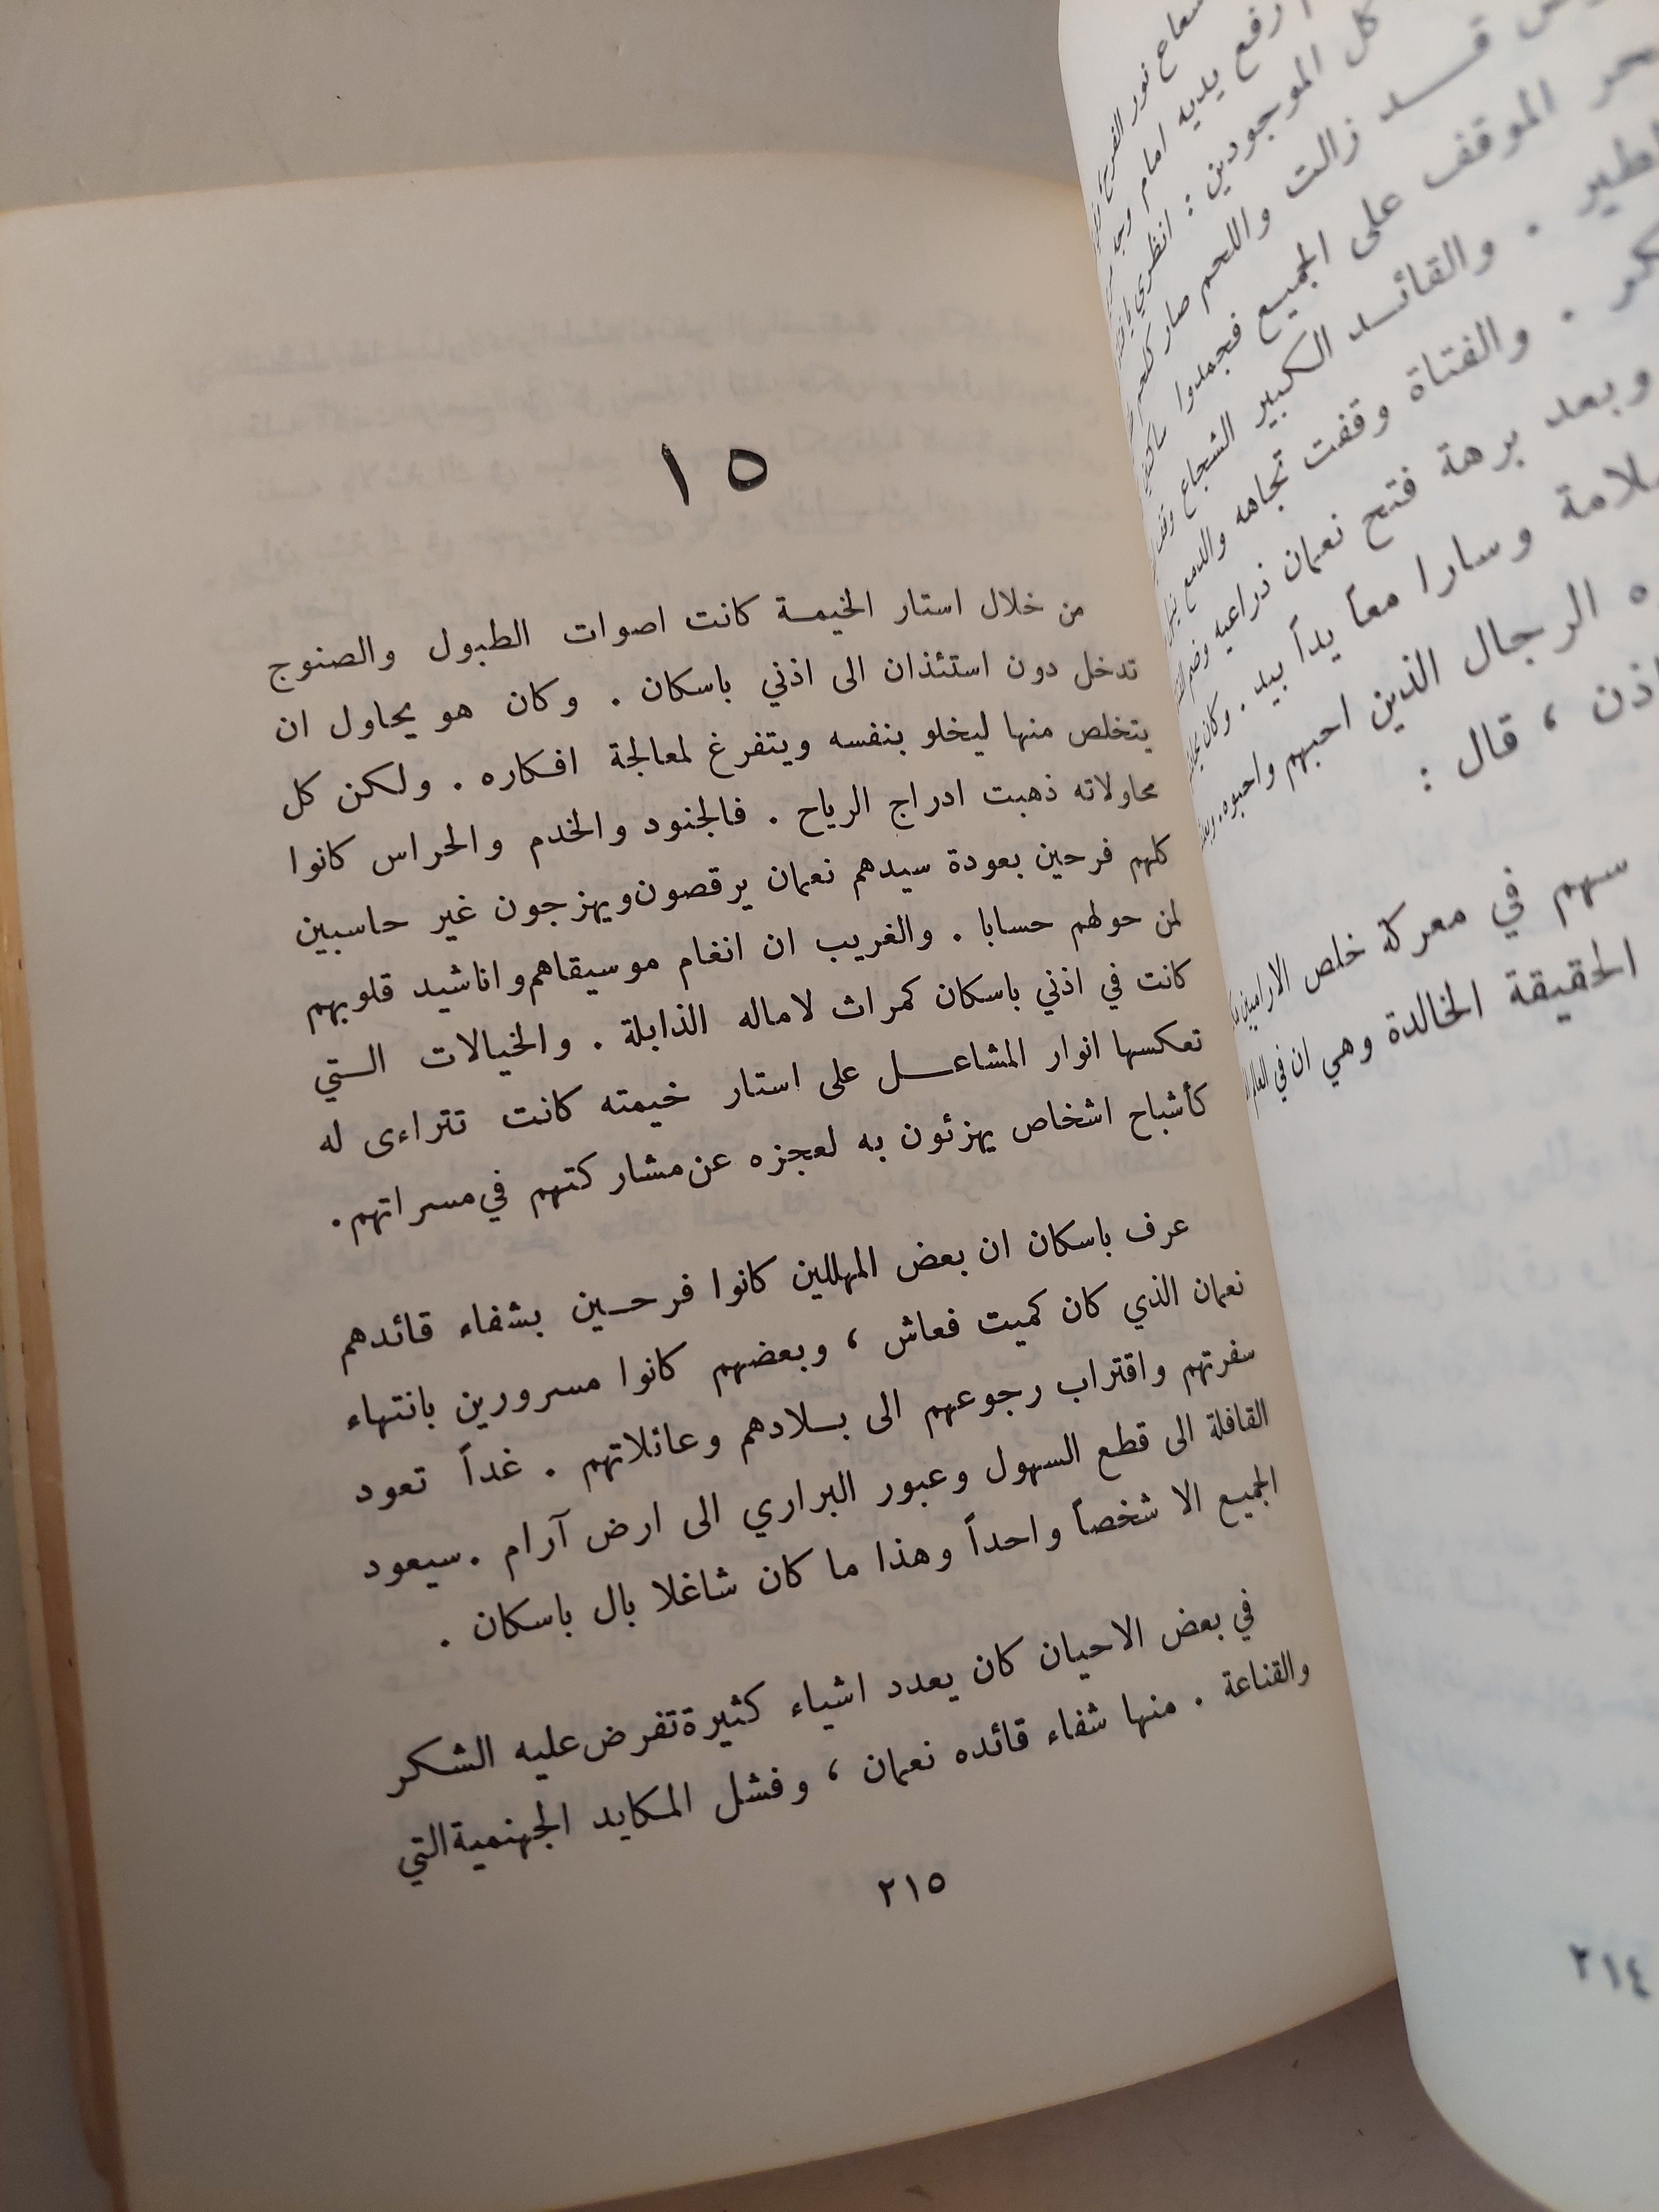 نور
رفع يديه امام
كل الموجودين : انظري
قـــد زالت واللحم صار
الموقف على الجميع فجمدوا
. والقائـــد الكبير الشجاع
. والفتاة وقفت تجاهه والدمع
وبعد برهة فتح نعمان ذراعيه وضم
وسارا معاً يداً بيد . وكان
الرجال الذين احبهم واحبوه .
، قال :
سهم في معركة خلص الاراميين
الحقيقة الخالدة وهي ان في العالم
٢١٤
١٥
من خلال استار الخيمــة كانت اصوات الطبول والصنوج
تدخل دون استئذان الى اذني باسكان . وكان هو يحاول ان
يتخلص منها ليخلو بنفسه ويتفرغ لمعالجة افكاره . ولكن كل
محاولاته ذهبت ادراج الرياح . فالجنود والخدم والحراس كانوا
كلهم فرحين بعودة سيدهم نعمان يرقصون ويهزجون غير حاسبين
لمن حولهم حسابا . والغريب ان انغام موسيقاهم واناشيد قلوبهم
كانت في اذني باسكان كمراث لاماله الذابلة . والخيالات الــتي
تعكسها انوار المشاعـــل على استار خيمته كانت تتراءى له
كأشباح اشخاص يهزئون به لعجزه عن مشاركتهم في مسراتهم .
عرف باسكان ان بعض المهللين كانوا فرحــين بشفاء قائدهم
نعمان الذي كان كميت فعاش ، وبعضهم كانوا مسرورين بانتهاء
سفرتهم واقتراب رجوعهم الى بــلادهم وعائلاتهم . غداً تعود
القافلة الى قطع السهول وعبور البراري الى ارض آرام . سيعود
الجميع الا شخصاً واحداً وهذا ما كان شاغلا بال باسكان .
في بعض الاحيان كان يعدد اشياء كثيرة تفرض عليه الشكر
والقناعة . منها شفاء قائده نعمان ، وفشل المكايد الجهنمية التي
٢١٥